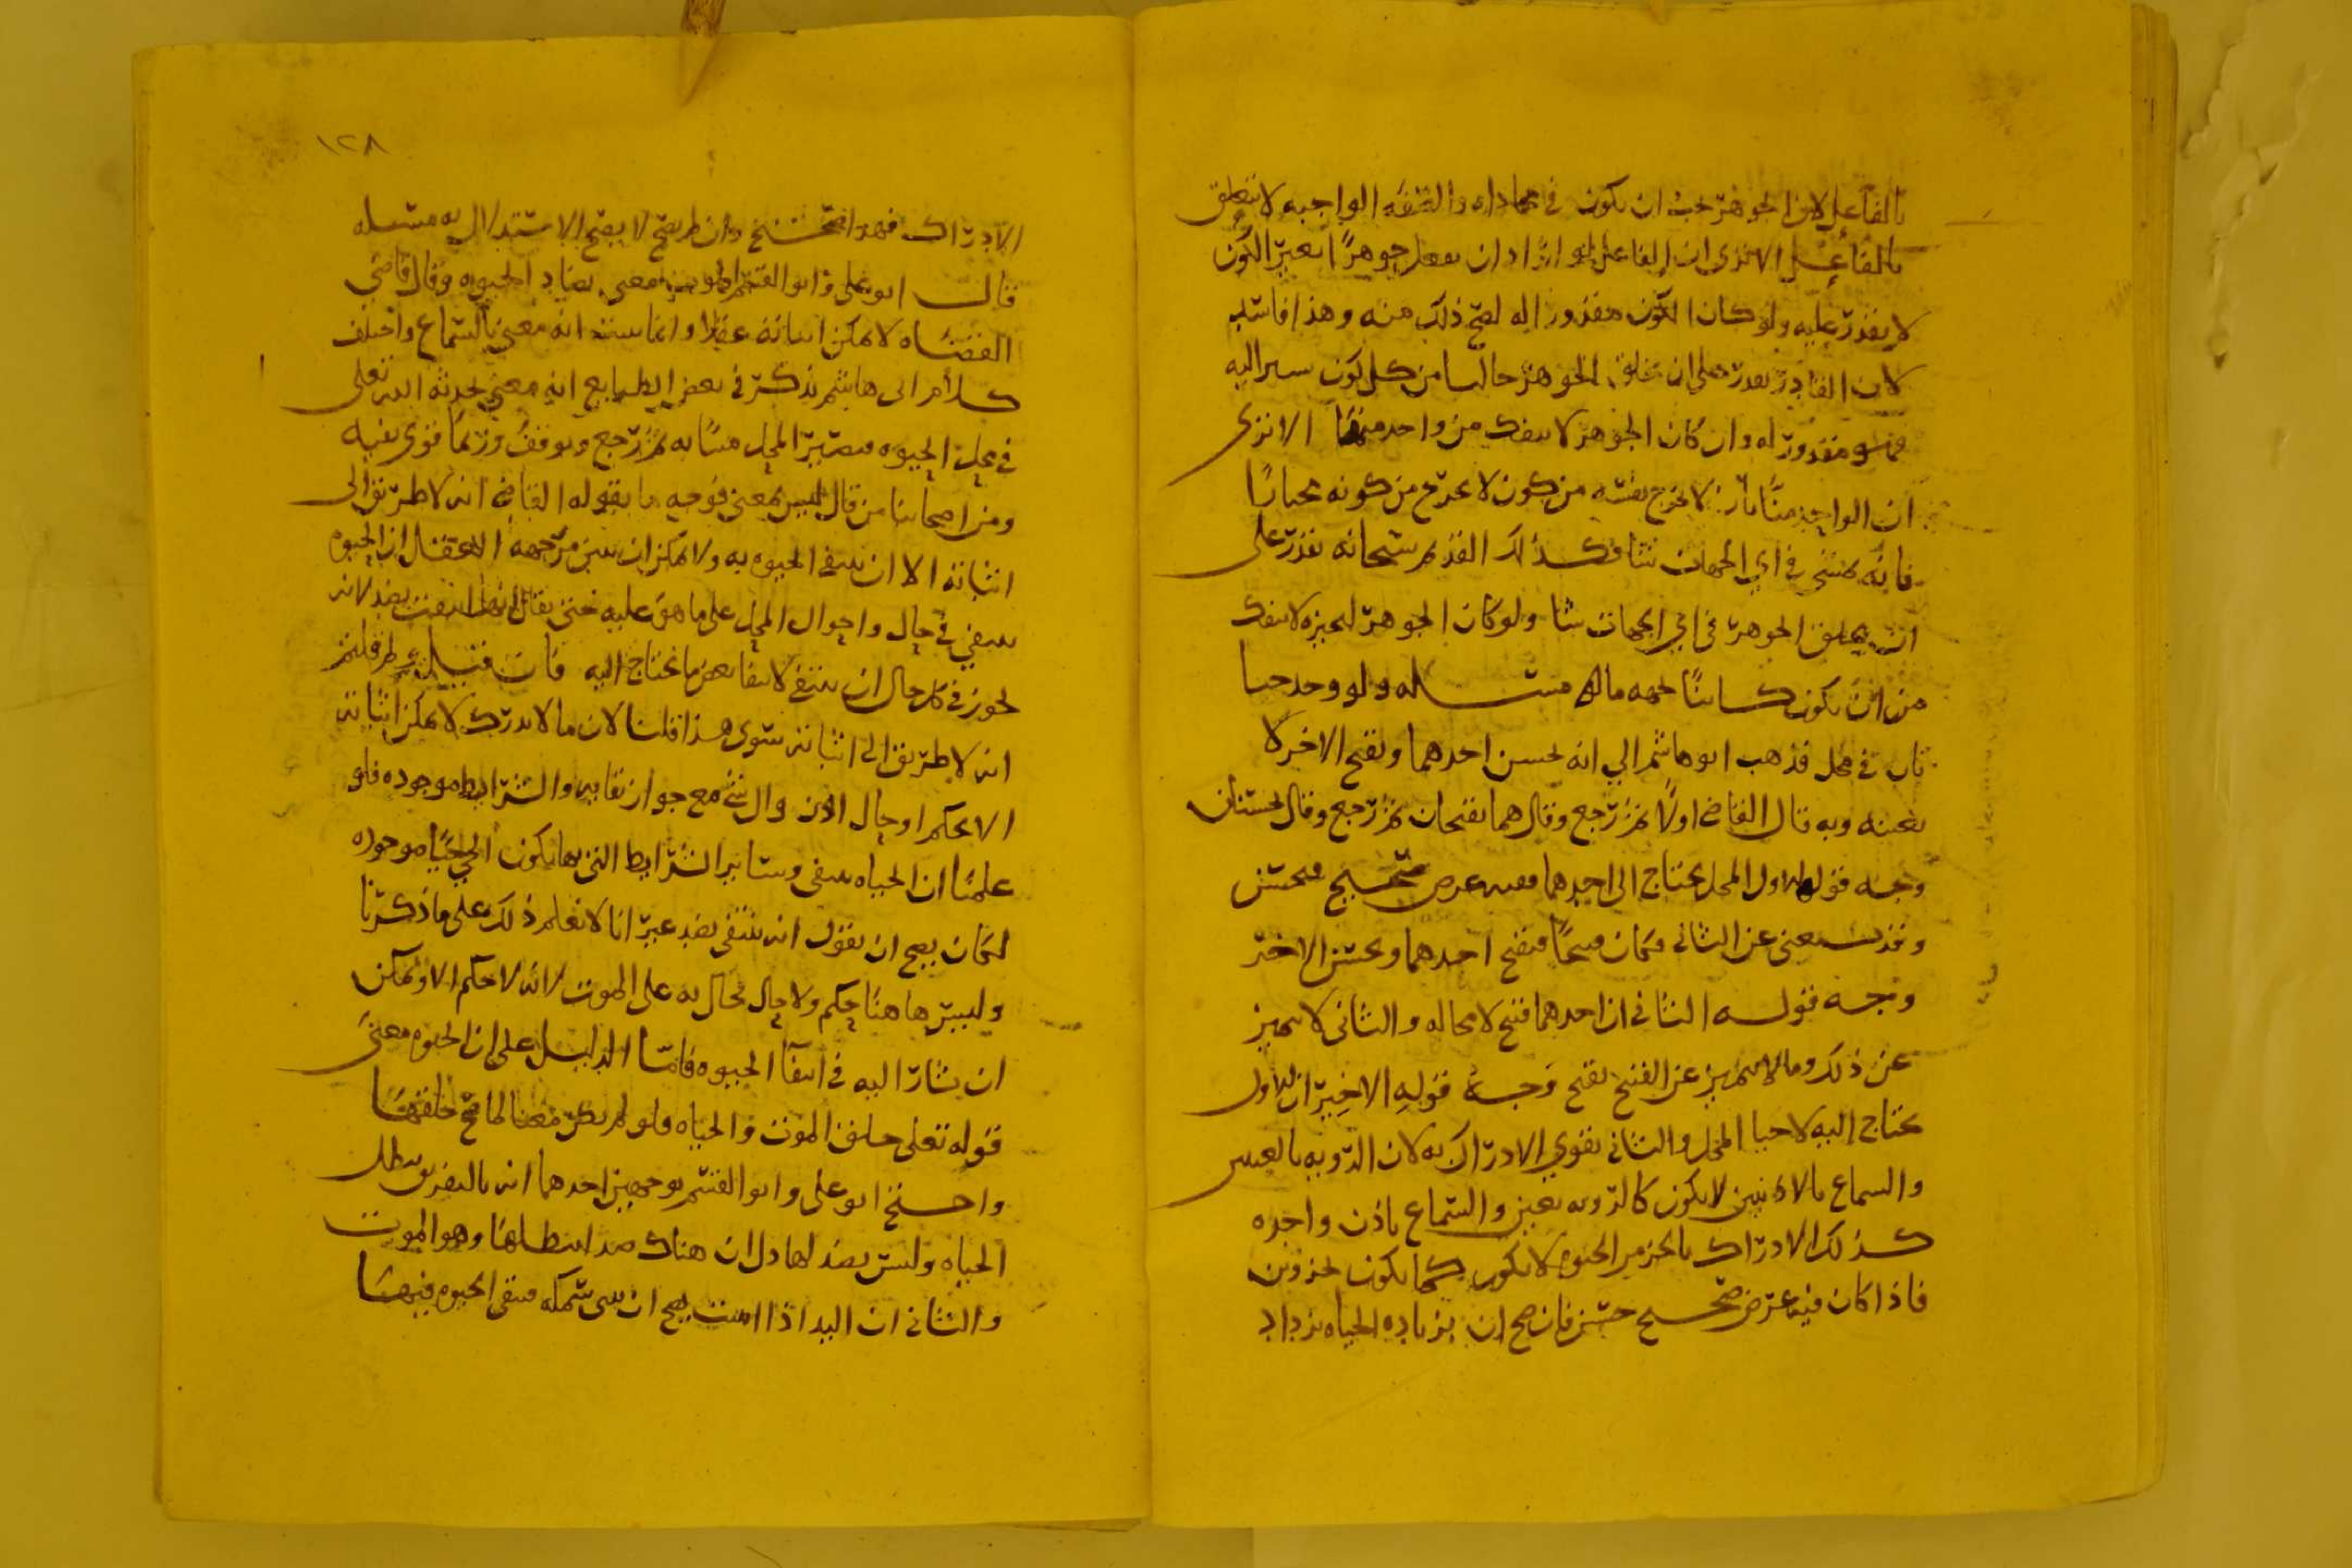 بالفاعل لان الجوهر يجب ان يكون في محاذاه والصفه الواجبه لا تتعلق
بالفاعل الا ترى ان الفاعل لو اراد ان يفعل جوهرًا بغير الكون
لا يقدر عليه ولو كان الكون مقدورا له لصح ذلك منه وهذا فاسد
لان القادر يقدر على ان يخلق الجوهر خاليا من كل كون يسير اليه
فهو مقدور له وان كان الجوهر لا ينفك من واحد منها الا ترى
ان الواحد منا بان لا يخرج نفسه من كون لا يخرج من كونه مختارًا
فانه يمشي في اي الجهات شا فكذلك القديم سبحانه يقدر على
ان يخلق الجوهر في اي الجهات شا ولو كان الجوهر لتحيزه لا ينفك
من ان يكون كاينًا جهه ما مسله ولو وجد حيا
ثان في محل فذهب ابو هاشم الي انه يحسن احدهما ويقبح الاخر لا
بعينه وبه قال القاضي اولًا ثم رجع وقال هما يقبحان ثم رجع وقال يحسنان
وجه قوله الاول المحل يحتاج الى احدهما ففيه عرض صحيح فيحسن
وقد يستغنى عن الثاني فكان قبيحًا فيقبح احدهما ويحسن الاخر
وجه قوله الثاني ان احدهما قبيح لا محاله والثاني لا يتميز
عن ذلك وما لا يتميز عن القبيح يقبح وجه قوله الاخير ان الاول
يحتاج اليه لاحيا المحل والثاني يقوي الادراك به لان الرويه بالعينين
والسماع بالاذنين لا يكون كالرويه بعين والسماع باذن واحده
كذلك الادراك بالجزء من الحيوه لا يكون كما يكون بجزوين
فاذا كان فيه عرض صحيح حسن فان صح ان بزياده الحياه يزداد
١٢٨
الادراك فهو احتج وان لم يصح لا يصح الاستدلال به مسله
قال ابو علي وابو القسم الموت معنى يضاد الحيوه وقال قاضي
القضاه لا يمكن اثباته عقلا وانما يثبت انه معنى بالسماع واختلف
كلام ابي هاشم يذكر في بعض الطبايع انه معنى يحدثه الله تعلى
في محل الحيوه فيصير المحل ميتًا به ثم رجع وتوقف وربما قوى نفيه
ومن اصحابنا من قال ليس بمعنى فوجه ما يقوله القاضي انه لا طريق الى
اثباته الا ان ينفي الحيوه به ولا يمكن ان يبين من جهه العقل ان الحيوه
ينتفي في حال واحوال المحل على ما هو عليه حتى يقال انها انتفت بضد لانه
يجوز في كل حال ان ينتفي لانتفا بعض ما تحتاج اليه فان قيل ولم قلتم
انه لا طريق الى اثباته سوى هذا قلنا لان ما لا يدرك لا يمكن اثباته
الا بحكم او حال الان وال شي مع جواز بقايه والشرايط موجوده فلو
علمنا ان الحياه ينتفي وساير الشرايط التي بها يكون الحي حيًا موجوده
لكان يصح ان يقول انه ينتفي بضد غير انا لا نعلم ذلك على ما ذكرنا
وليس هاهنا حكم ولا حال يحال به على الموت لانه لا حكم الا ويمكن
ان يشار اليه في انتفا الحيوه فاما الدليل على ان الحيوه معنى
قوله تعلى خلق الموت والحياه فلو لم يكن معنا لما صح خلقها
واحتج ابو علي وابو القسم بوجهين احدهما انه بالتفريق يبطل
الحياه وليس بضد لها دل ان هناك ضد ابطلها وهو الموت
والثاني ان اليد اذا ابينت يصح ان يبقى سمكه فيبقى الحيوه فيها